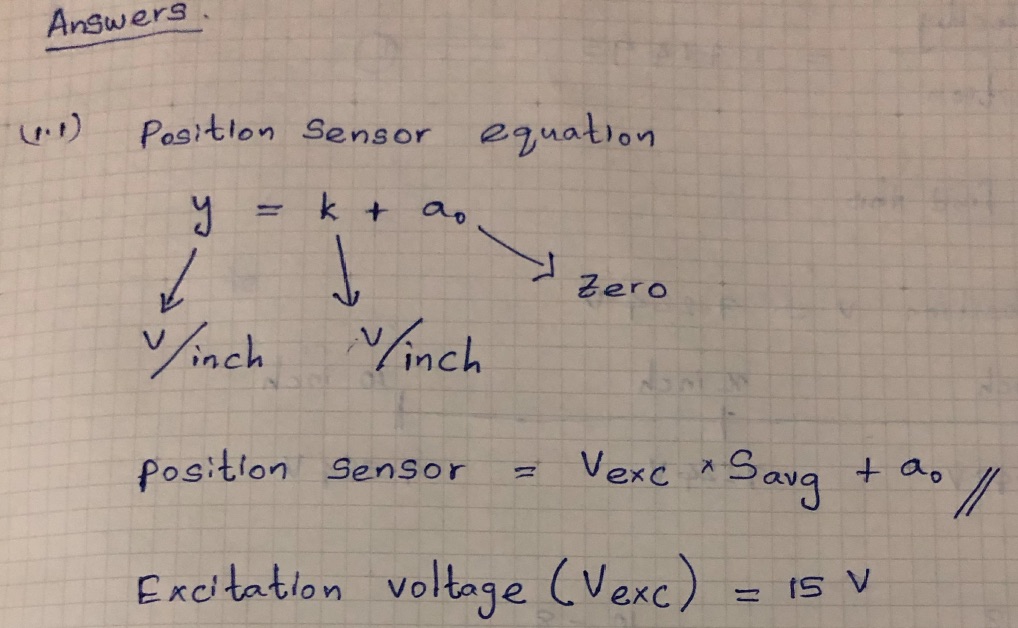 Answers.
(1.1) Position Sensor equation
y = k + a₀
Zero
V/inch V/inch
Position Sensor = Vexc * Savg + a₀ //
Excitation voltage (Vexc) = 15 V